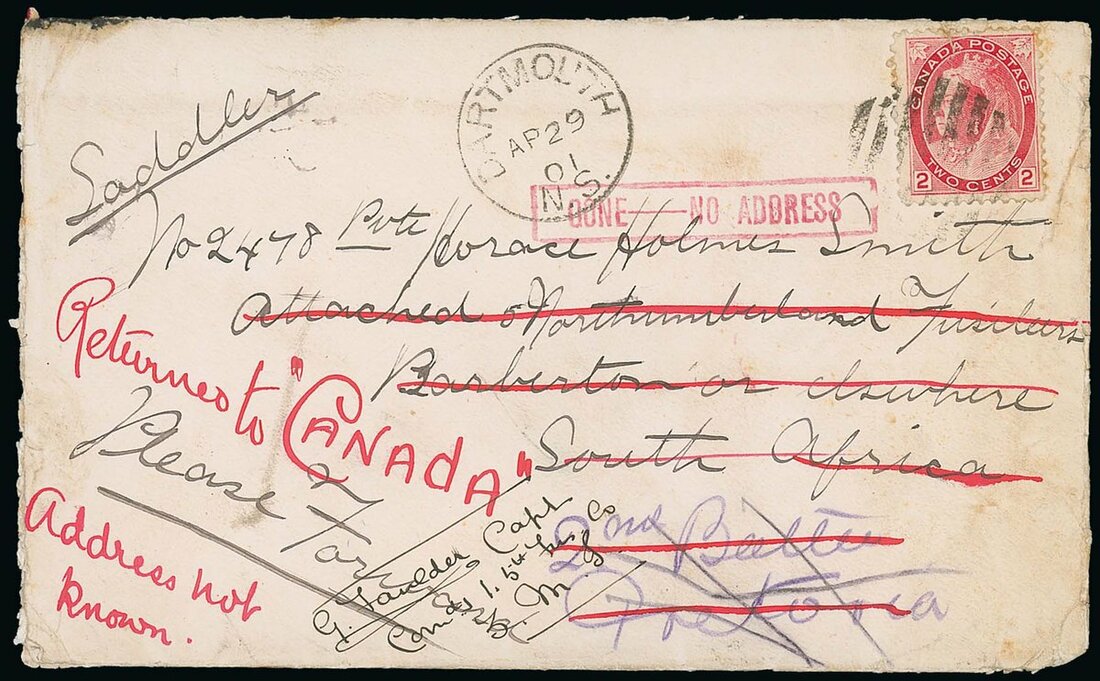 CANADA POSTAGE
2 TWO CENTS 2
DARTMOUTH
AP 29
01
N.S.
GONE — NO ADDRESS
Saddler
No 2478 Pvte Horace Holmes Smith
Attached 5 Northumberland Fusileers
Barberton or elsewhere
South Africa
Returned to "CANADA"
Please
Address not
known.
2nd Battn
Pretoria
Capt
Comdr 1. 5th Fus. Co
M I